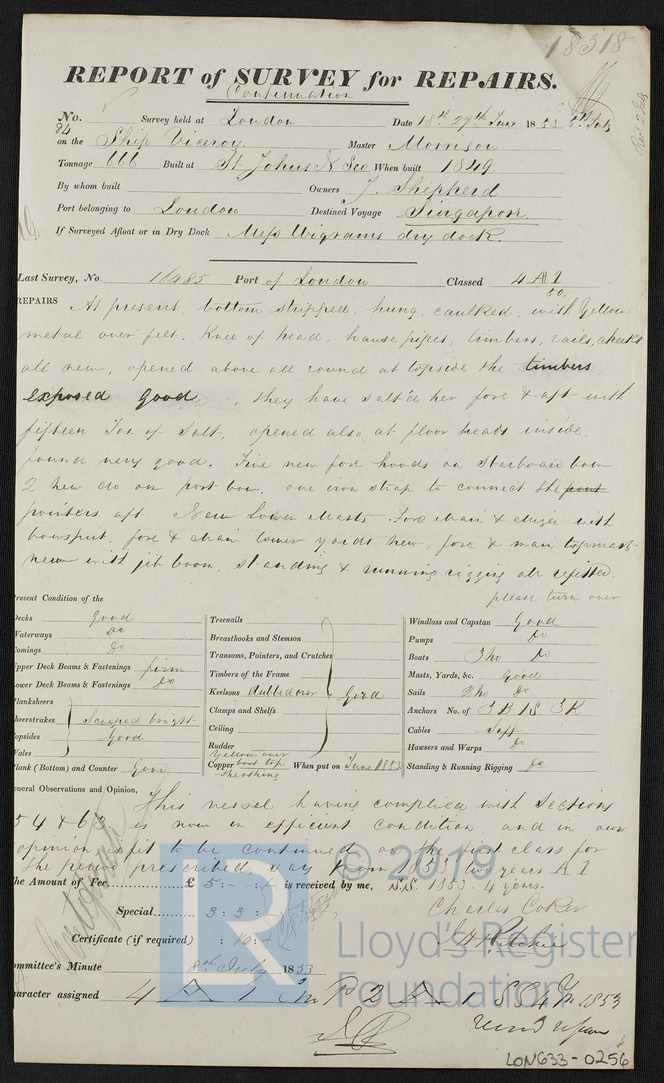 18318
REPORT of SURVEY for REPAIRS.
Continuation
No. 84 Survey held at London Date 18th 29th June 1853 8th July
on the Ship Viceroy Master Morrison
Tonnage 666 Built at St Johns N Sco When built 1849
By whom built Owners J. Shepherd
Port belonging to London Destined Voyage Singapore
If Surveyed Afloat or in Dry Dock Mess Wigrams dry dock.
Last Survey, No. 16485 Port of London Classed 4 A1 50.
REPAIRS At present, bottom stripped, hung, caulked, with Yellow
metal over felt. Knee of head, hause pipes, timbers, rails, cheeks
all new, opened above all round at topside the timbers
exposed good, they have salt'd her fore & aft with
fifteen Ton of Salt, opened also at floor heads inside
found very good. Five new fore hoods on Starboard bow
2 new do on port bow. one iron strap to connect the
pointers aft New Lower Masts Fore Main & Mizen with
bowsprit, fore & main lower yards new, fore & main topmast
new with jib boom, standing & running rigging all refitted
please turn over
Present Condition of the
Decks Good
Waterways Do
Comings Do
Upper Deck Beams & Fastenings firm
Lower Deck Beams & Fastenings Do
Planksheers
Sheerstrakes Scraped bright
Topsides Good
Wales
Plank (Bottom) and Counter Good
Treenails
Breasthooks and Stemson
Transoms, Pointers, and Crutches
Timbers of the Frame
Keelsons doubled over Good
Clamps and Shelfs
Ceiling
Rudder
Yellow over
Copper boot top When put on June 1853
Sheathing
Windlass and Capstan Good
Pumps Do
Boats 3 No Do
Masts, Yards, &c. Good
Sails 2 No Do
Anchors No. of 3B 1S 3K
Cables Saft
Hawsers and Warps Do
Standing & Running Rigging Do
General Observations and Opinion, This vessel having complied with Sections
54 & 63 is now in efficient condition and in our
opinion fit to be continued on the first class for
the period prescribed say from 1853 two years A 1
The Amount of Fee £ 5 : - : - is received by me, S.S. 1853. 4 years.
Special 3 : 3 : Charles Coker
Certificate (if required) : 10 : - Ritchie
Committee's Minute 8th July 1853
Character assigned 4 A 1 2 A 1 1853
© 2019
LR
Lloyd's Register
Foundation
LON633-0256